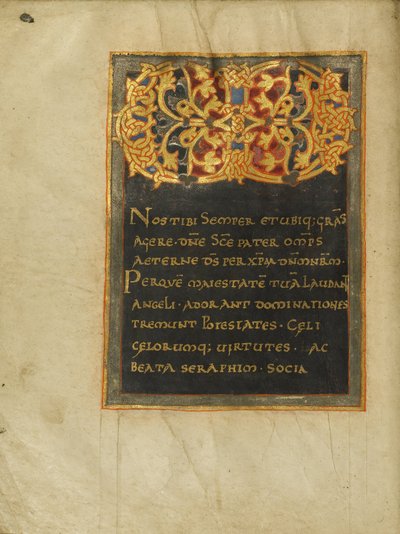 Nos tibi semper et ubiq; gr̄as
agere · dn̄e sc̄e pater om̄ps
aeterne d̄s per xp̄m dn̄m nr̄m ·
Per quē maiestatē tuā laudant
angeli · adorant dominationes
tremunt potestates · celi
celorumq; uirtutes · ac
beata seraphim · socia